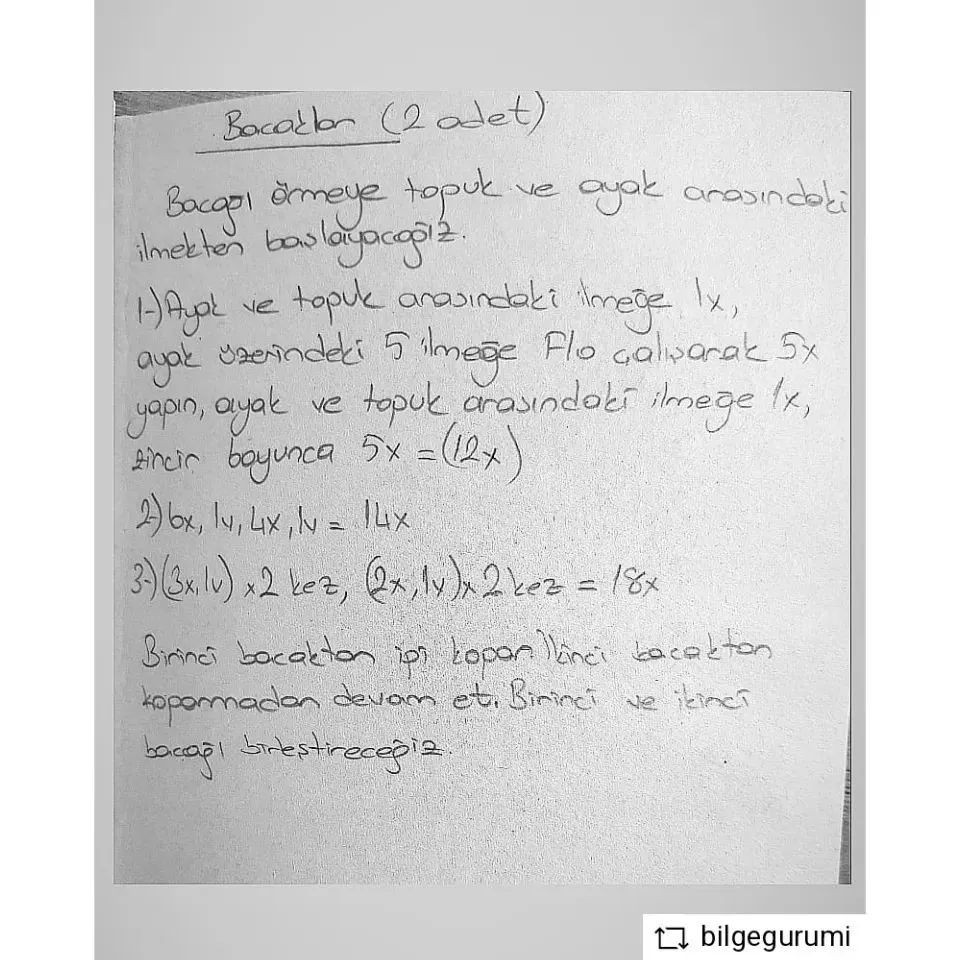 Bacaklar (2 adet)
Bacağı örmeye topuk ve ayak arasındaki
ilmekten başlayacağız.
1-) Ayak ve topuk arasındaki ilmeğe 1x,
ayak üzerindeki 5 ilmeğe Flo çalışarak 5x
yapın, ayak ve topuk arasındaki ilmeğe 1x,
zincir boyunca 5x = (12x)
2-) 6x, 1v, 4x, 1v = 14x
3-) (3x, 1v) x2 kez, (2x, 1v) x 2 kez = 18x
Birinci bacaktan ipi kopar. İkinci bacaktan
koparmadan devam et. Birinci ve ikinci
bacağı birleştireceğiz.
bilgegurumi